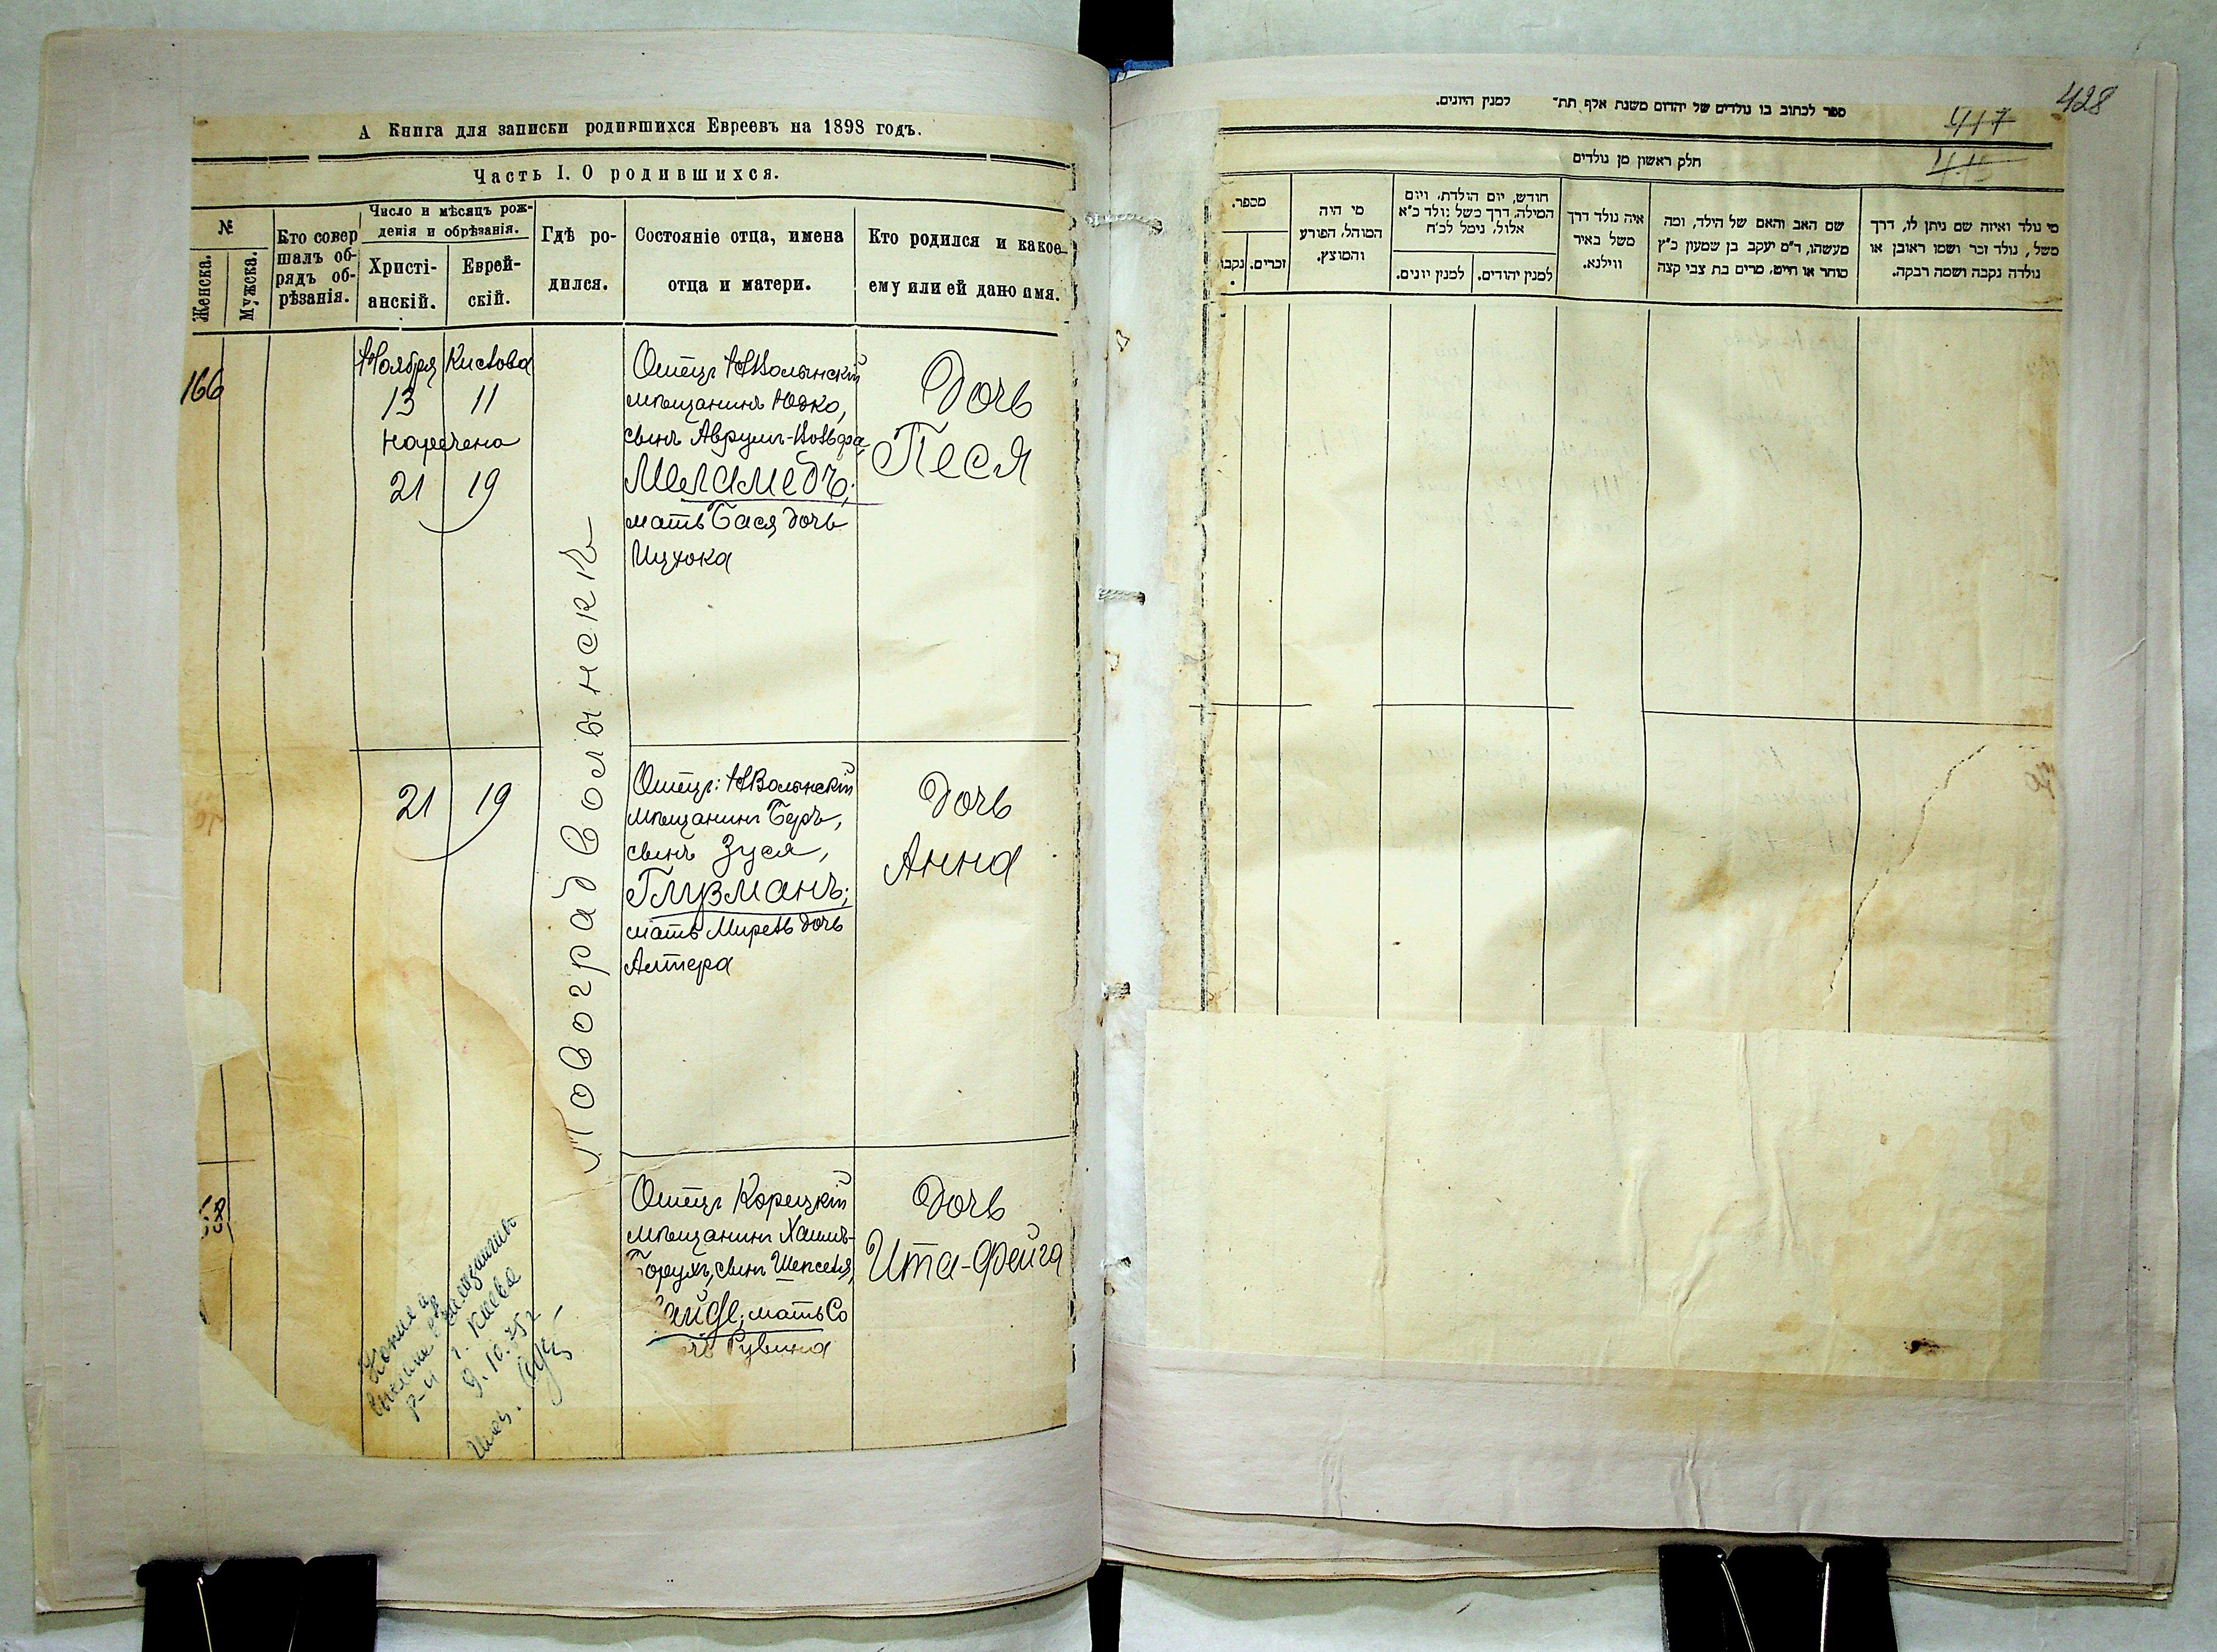 А Книга для записки родившихся Евреевъ на 1898 годъ.
Часть I. О родившихся.
№
Женска.
Мужска.
Кто совер
шалъ об-
рядъ об-
рѣзанія.
Число и мѣсяцъ рож-
денія и обрѣзанія.
Христі-
анскій.
Еврей-
скій.
Гдѣ ро-
дился.
Состояніе отца, имена
отца и матери.
Кто родился и какое
ему или ей дано имя.
166
Ноября Кислова
13 11
наречена
21 19
Отецъ НВолынскій
мѣщанинъ Юдко,
сынъ Аврумъ-Вольфа
Меламедъ;
мать Бася дочь
Ицхока
Дочь
Песя
Новоградволынскъ
21 19
Отецъ: НВолынскій
мѣщанинъ Беръ,
сынъ Зуся,
Глузманъ;
мать Мирель дочь
Алтера
Дочь
Анна
68
Отецъ Корецкій
мѣщанинъ Хаимъ-
Борухъ, сынъ Шепселя,
мать Со
Рувина
Дочь
Ита-Фейга
Копия
г. Киева
9.10.75г
428
417
415
ספר לכתוב בו נולדים של יהדום משנת אלף תת־ למנין היונים.
חלק ראשון מן נולדים
מספר.
נקבו
זכרים.
מי היה
המוהל, הפורע
והמוצץ.
חודש, יום הולדת, ויום
המילה, דרך משל נולד כ״א
אלול, נימל לכ״ח
למנין יונים.
למנין יהודים.
איה נולד דרך
משל באיר
ווילנא.
שם האב והאם של הילד, ומה
מעשהו, ד״מ יעקב בן שמעון כ״ץ
סוחר או חייט, מרים בת צבי קצה
מי נולד ואיזה שם ניתן לו, דרך
משל, נולד זכר ושמו ראובן או
נולדה נקבה ושמה רבקה.